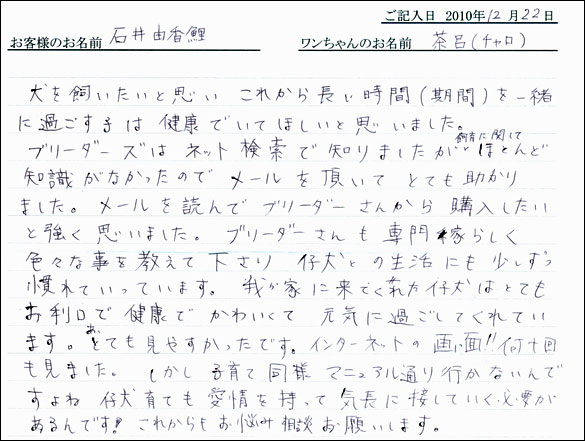 ご記入日 2010年12月22日
お客様のお名前 石井由香鯉 ワンちゃんのお名前 茶呂(チャロ)
犬を飼いたいと思い これから長い時間(期間)を一緒
に過ごす子は 健康でいてほしいと思いました。
飼育に関して
ブリーダーズは ネット検索で知りましたが ほとんど
知識がなかったので メールを頂いて とても助かり
ました。 メールを読んで ブリーダーさんから 購入したい
と強く思いました。 ブリーダーさんも 専門家らしく
色々な事を教えて下さり 仔犬との生活にも 少しずつ
慣れていっています。 我が家に来てくれた仔犬はとても
お利口で 健康で かわいくて 元気に過ごしてくれてい
ます。 あと とても見やすかったです。 インターネットの 画面!! 何十回
も見ました。 しかし 子育て同様 マニュアル通り行かないんで
すよね 仔犬育ても 愛情を持って 気長に接していく必要が
あるんです! これからもお悩み相談お願いします。